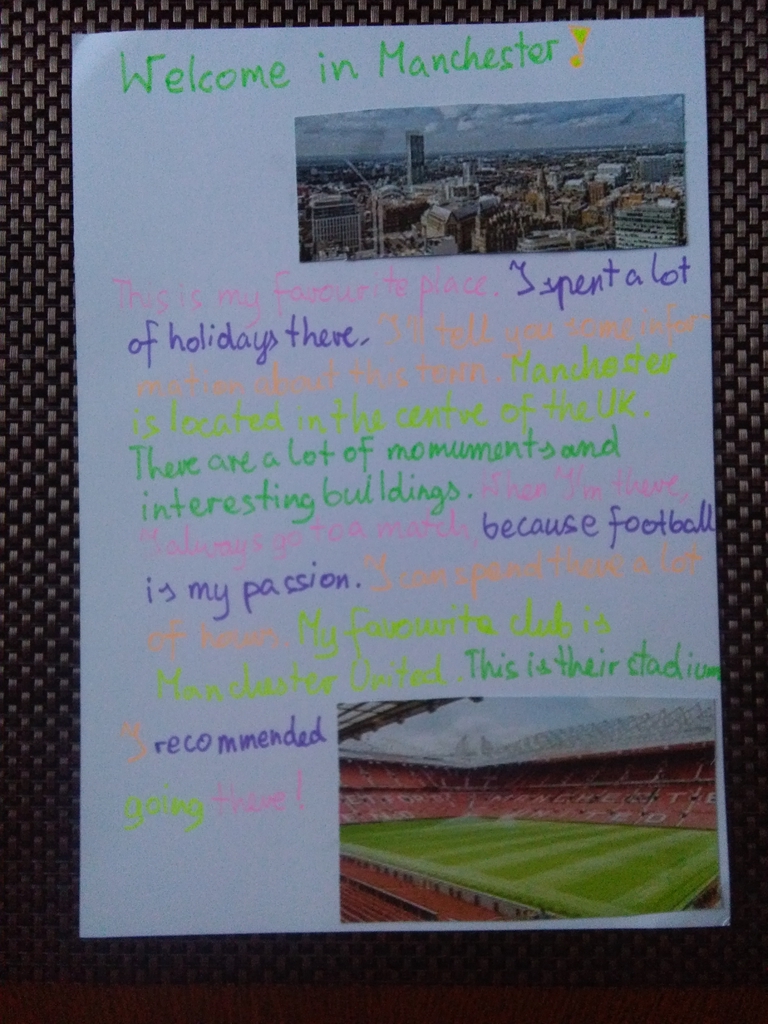 Welcome in Manchester!
This is my favourite place. I spent a lot
of holidays there. I'll tell you some infor-
mation about this town. Manchester
is located in the centre of the UK.
There are a lot of momuments and
interesting buildings. When I'm there,
I always go to a match, because football
is my passion. I can spend there a lot
of hours. My favourite club is
Manchester United. This is their stadium
I recommended
going there!